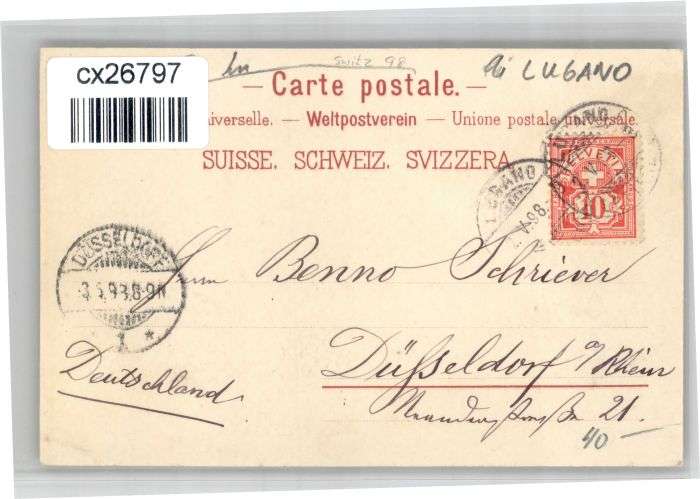 cx26797
Switz 98
LUGANO
— Carte postale. —
iverselle. — Weltpostverein — Unione postale universale.
SUISSE. SCHWEIZ. SVIZZERA
LUGANO
V.98.
HELVETIA
10
DÜSSELDORF
3.5.98.8-9N
1 *
Herrn Benno Schriever
Düsseldorf a/Rhein
Deutschland
21.
40 —